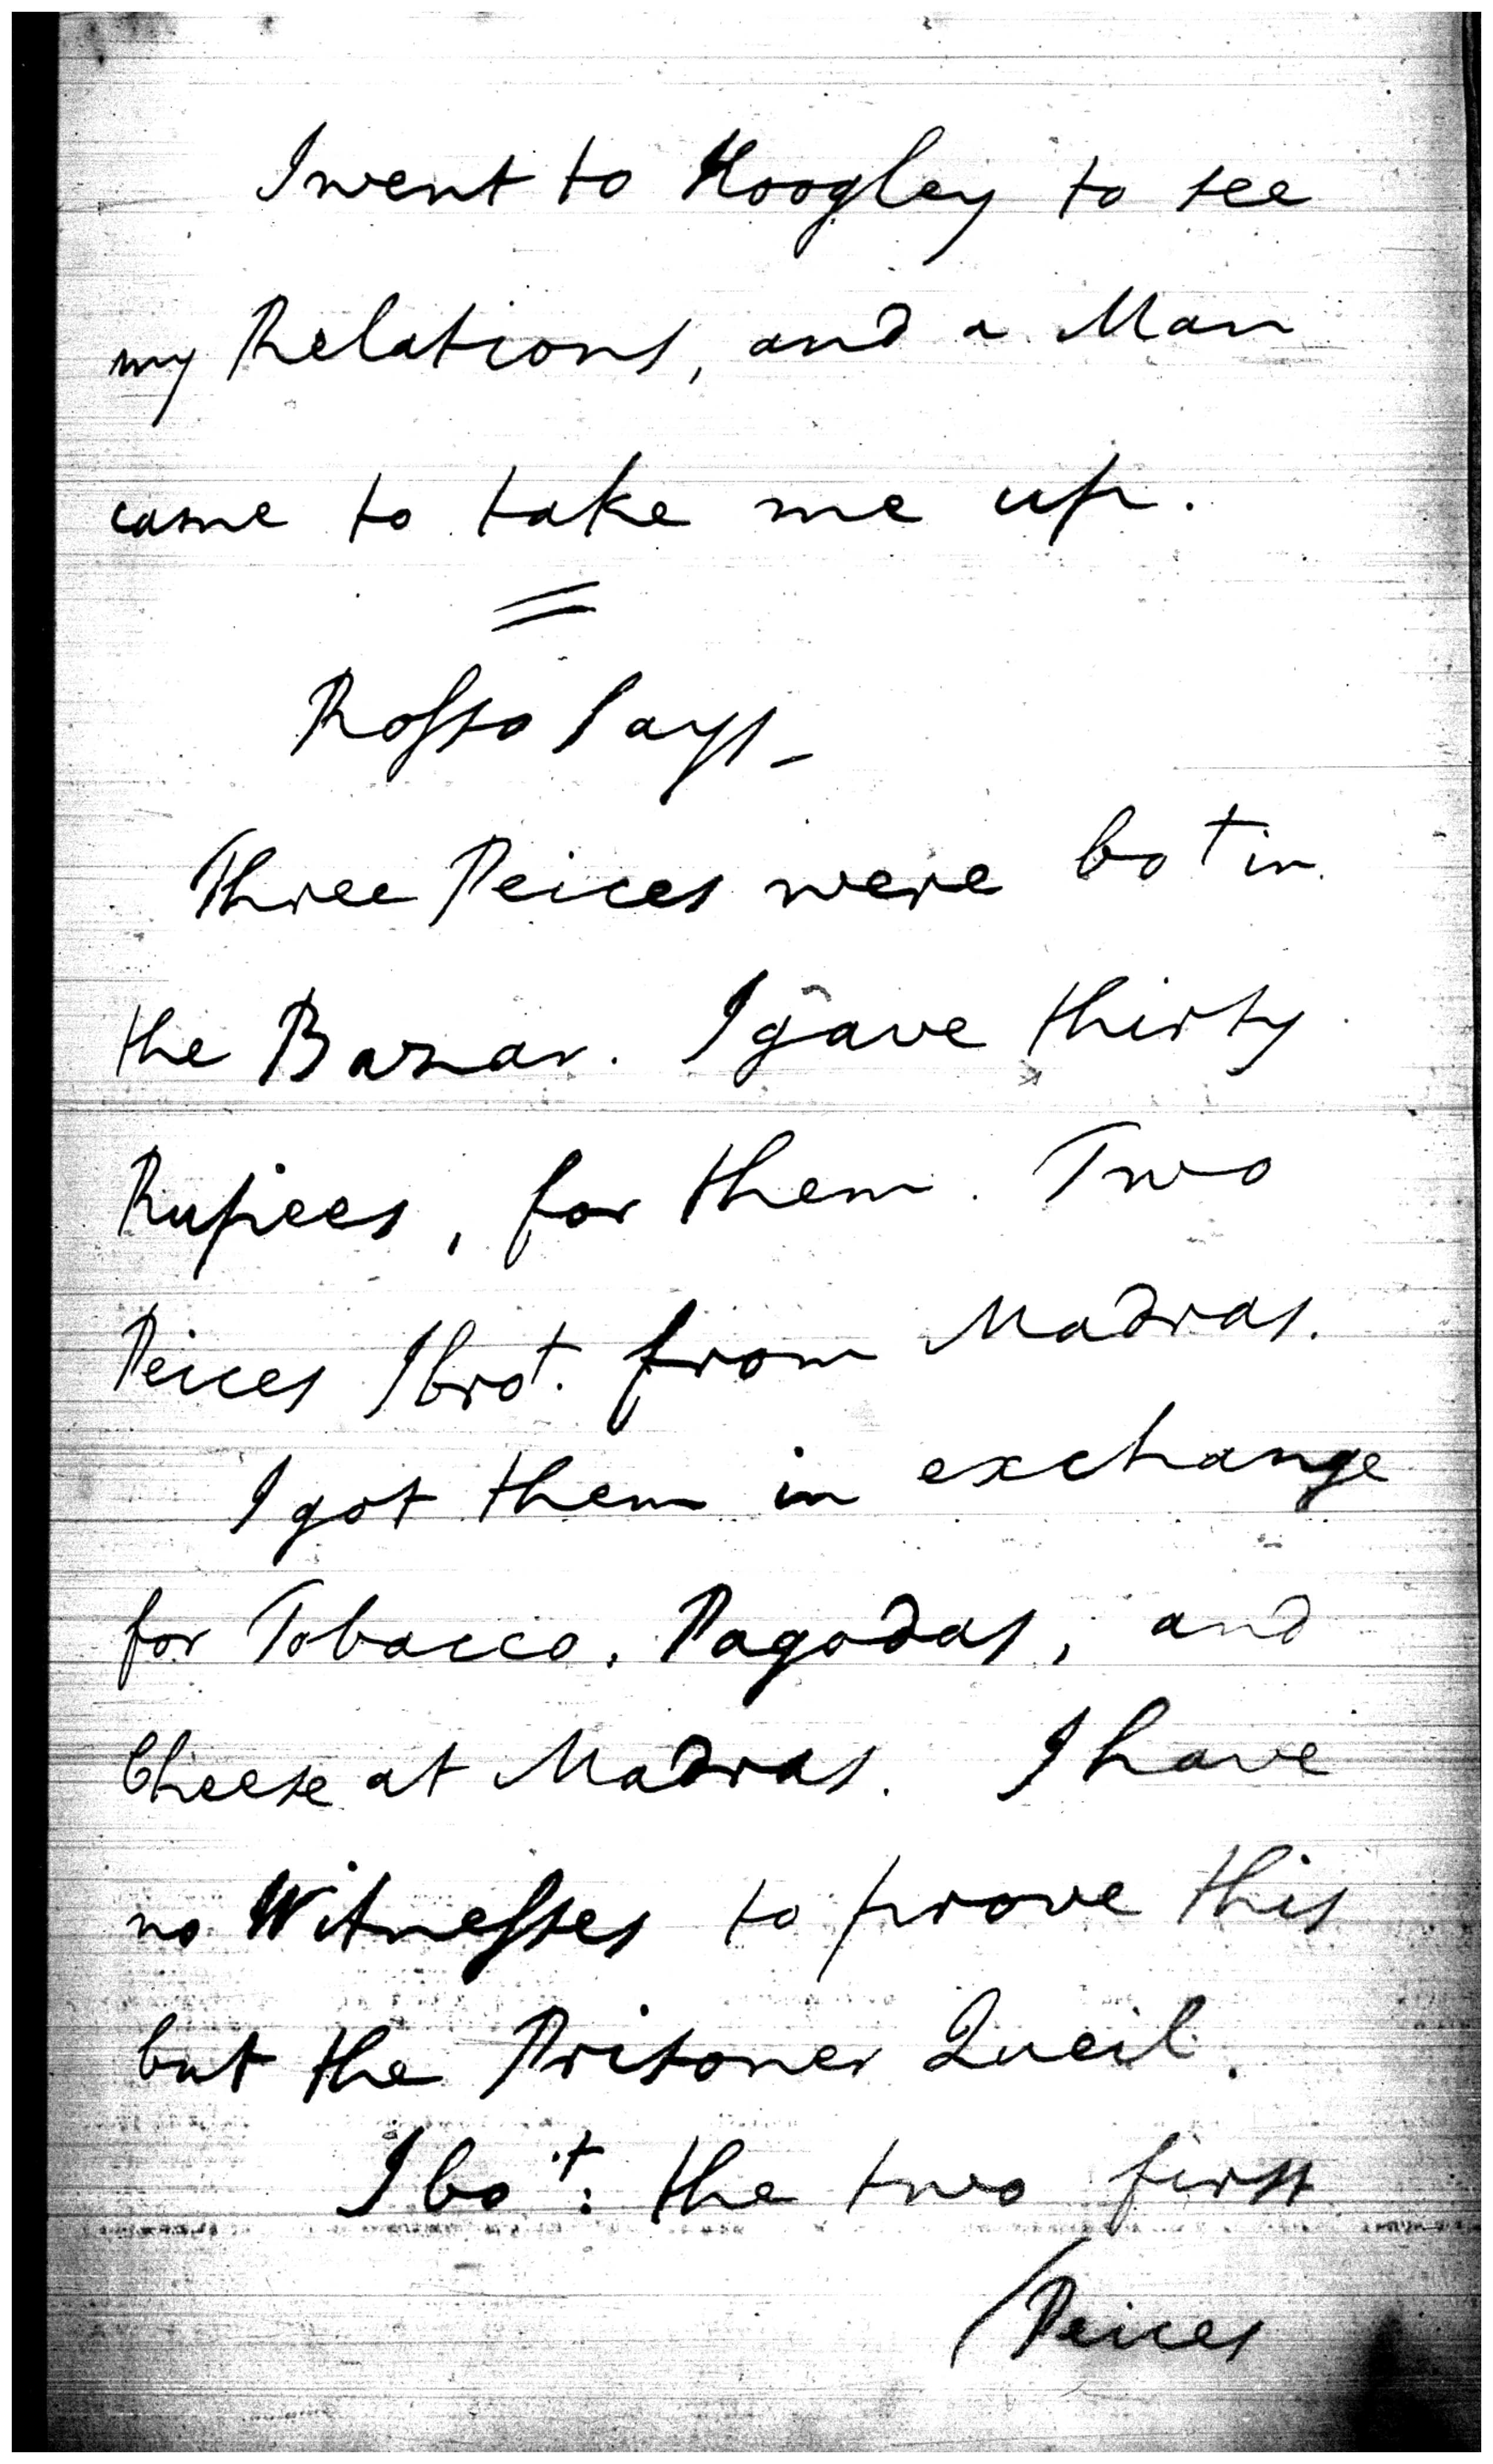 I went to Hoogley to see
my Relations, and a Man
came to take me up.
=
Rosso says_
Three Peices were bot in
the Bazar. I gave thirty
Rupees, for them. Two
Peices I brot. from Madras.
I got them in exchange
for Tobacco, Pagodas, and
Cheese at Madras. I have
no Witnesses to prove this
but the Prisoner Queil.
I bot: the two first
/Peices